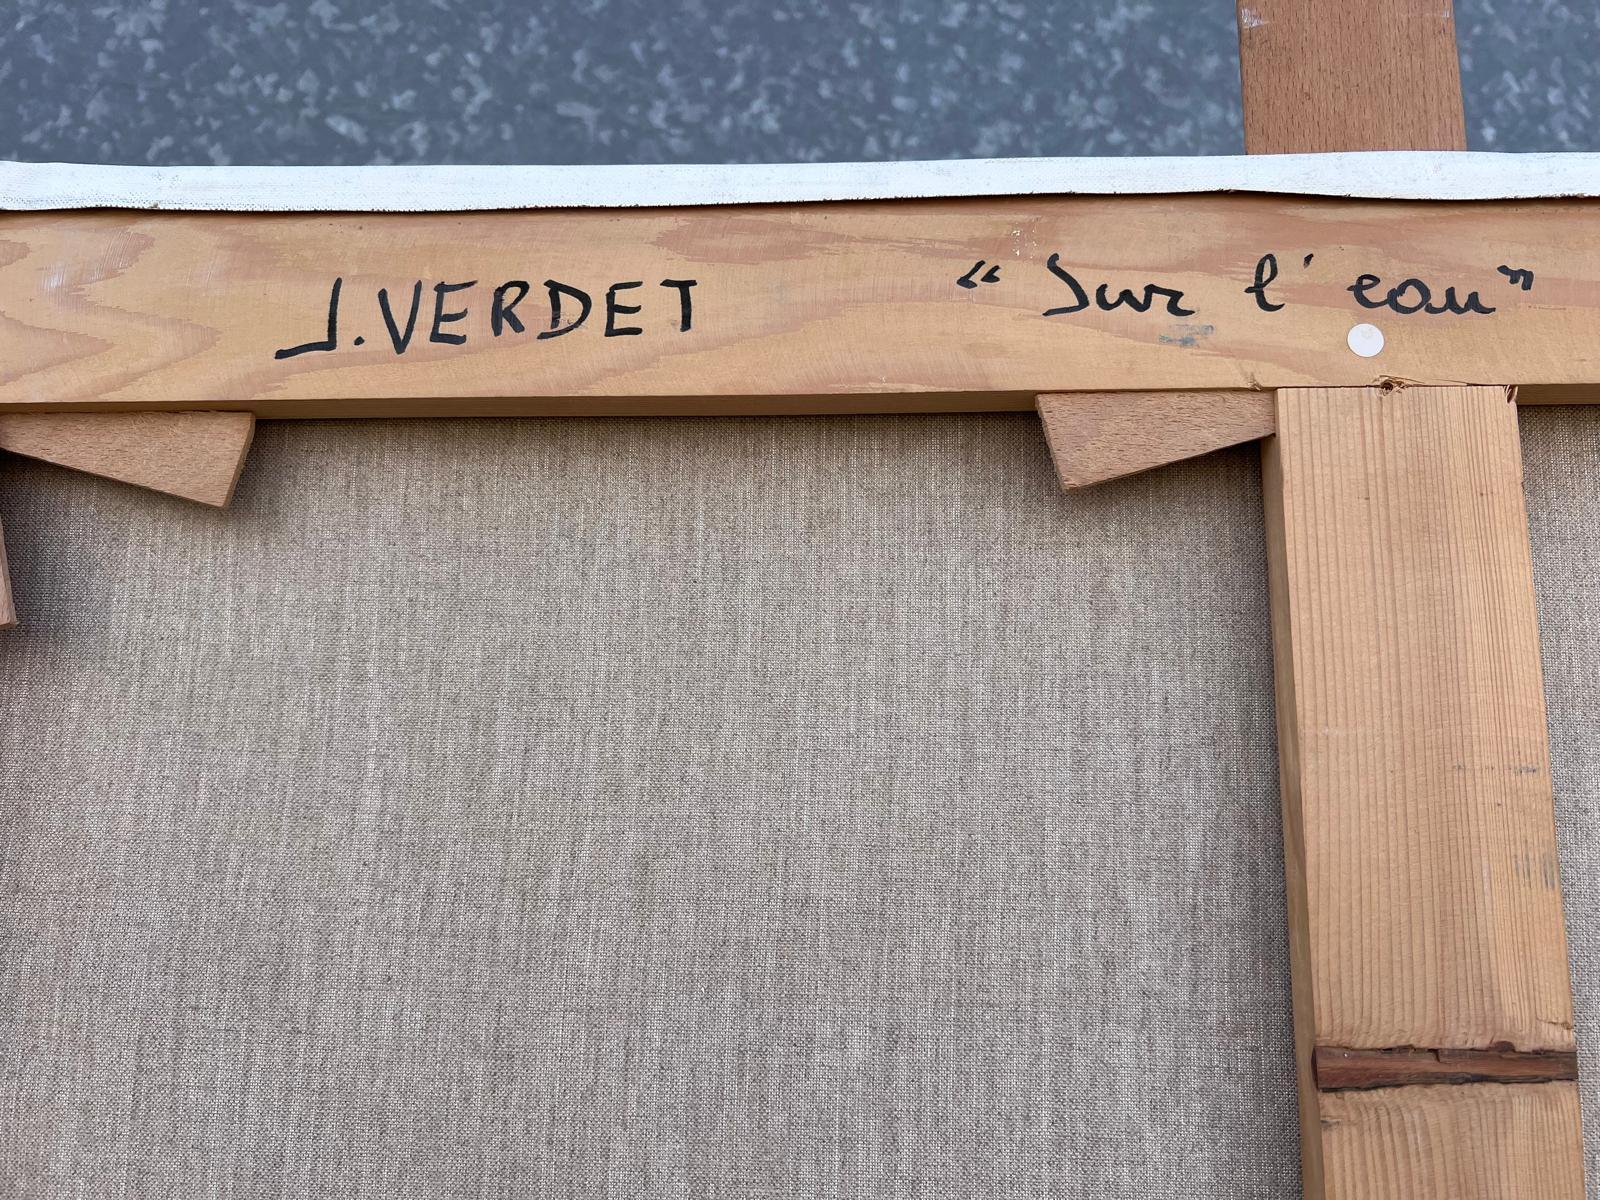 J. VERDET “Sur l'eau”